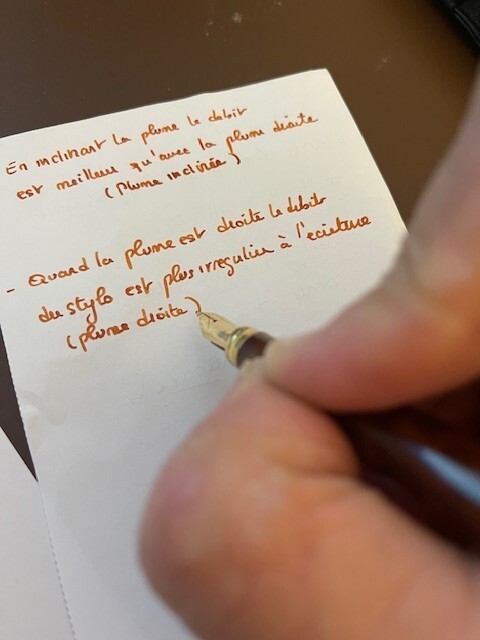 En inclinant la plume le debit
est meilleur qu'avec la plume droite
(plume inclinée)
- Quand la plume est droite le debit
du stylo est plus irregulier à l'ecriture
(plume droite)